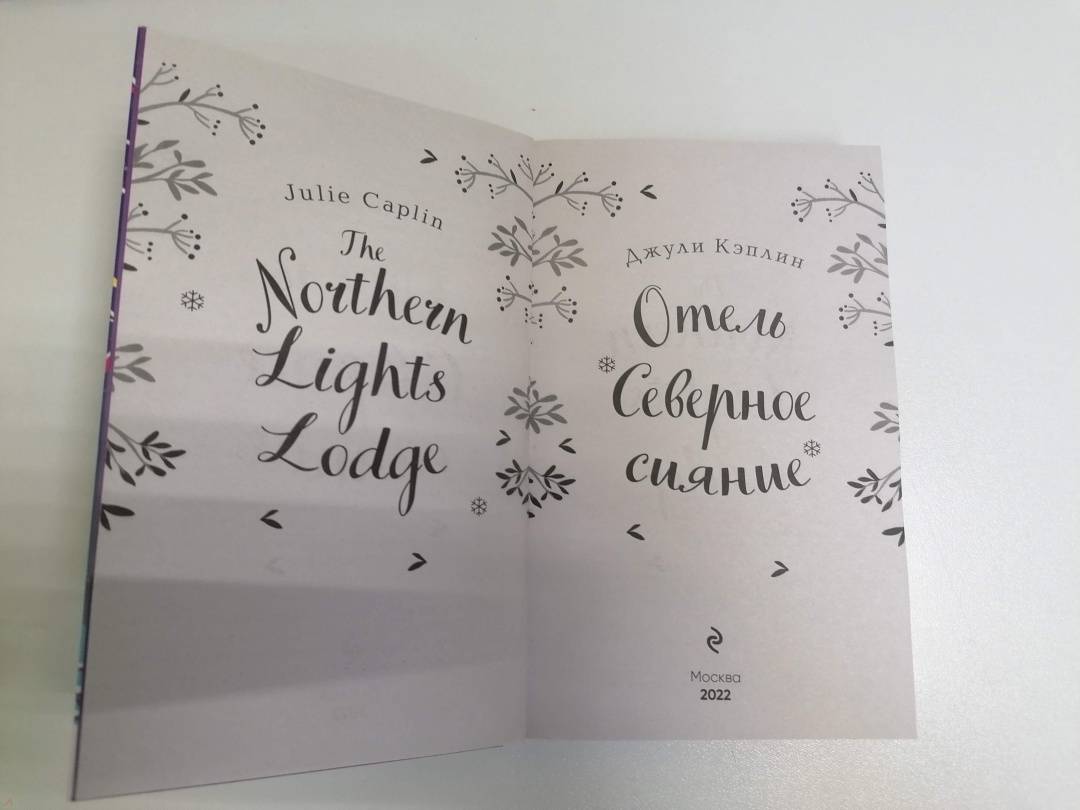 Julie Caplin
The
Northern
Lights
Lodge
Джули Кэплин
Отель
Северное
сияние
Москва
2022